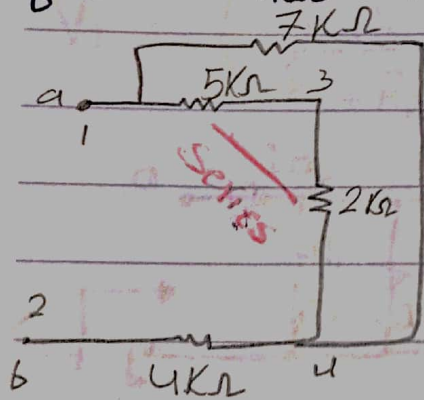 7KΩ
a 5KΩ 3
1
Series
2KΩ
2
b 4KΩ 4